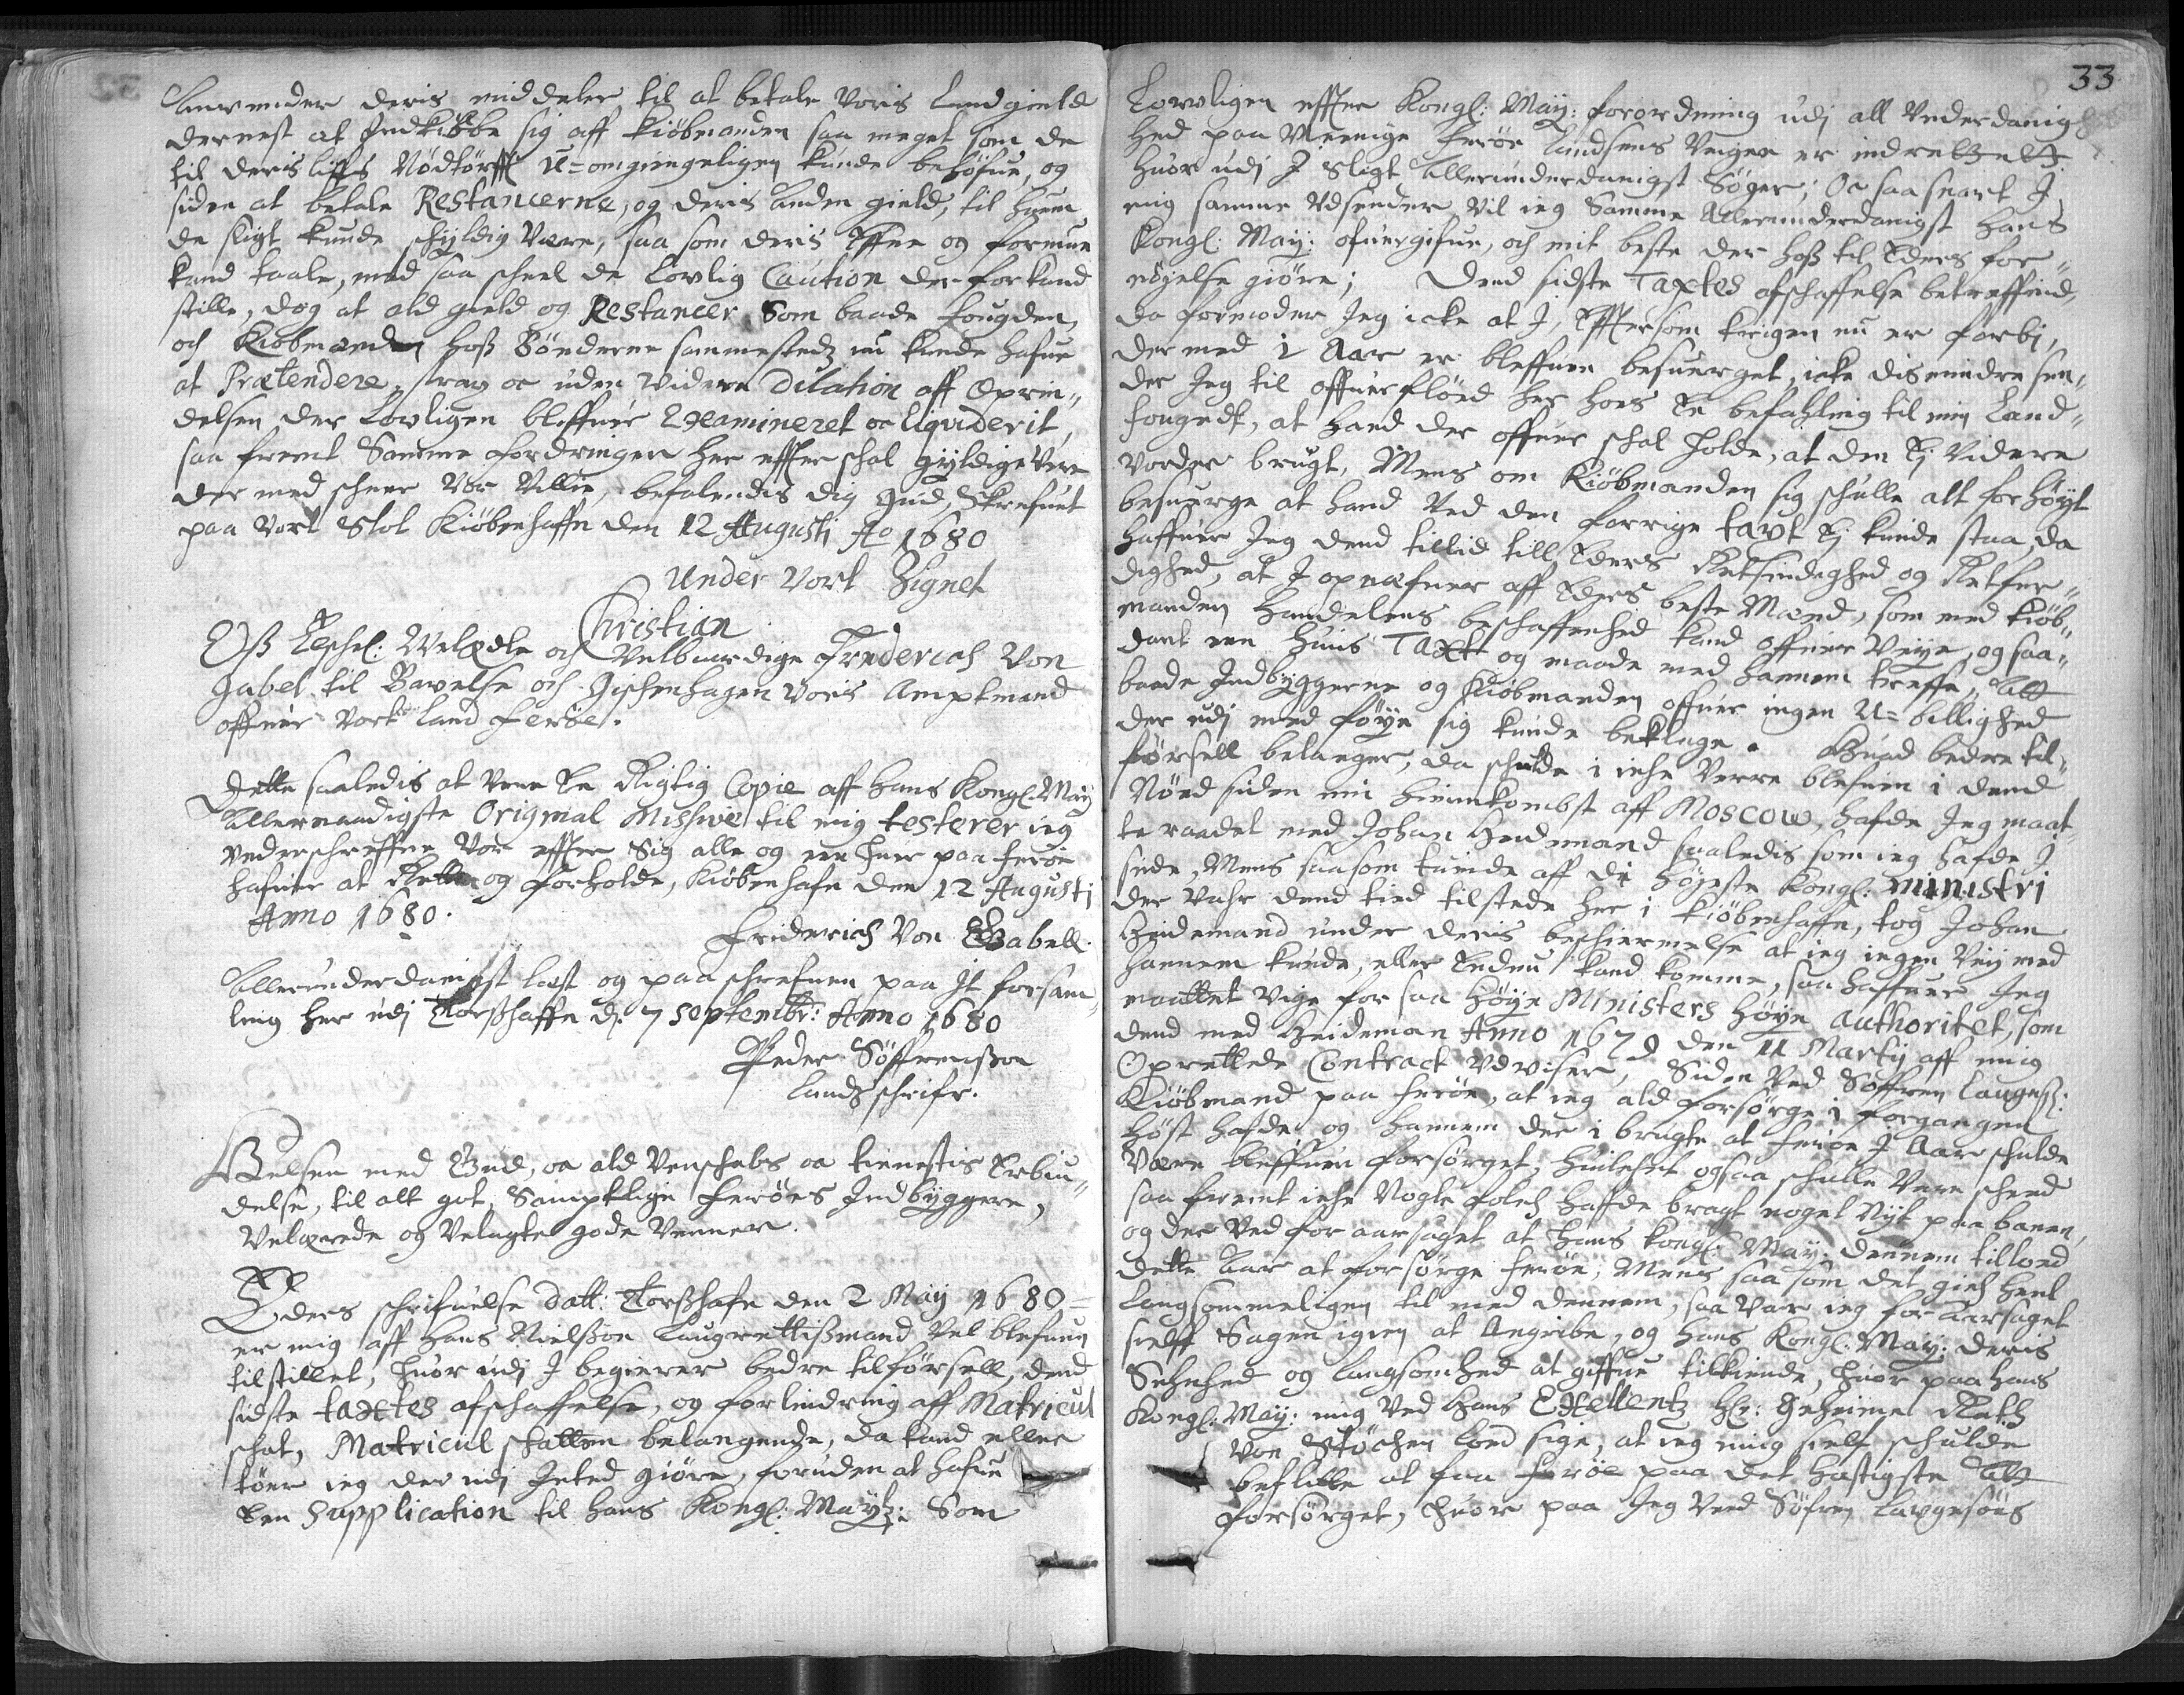 Anvender deris middeler til at betale Voris Landgield
dernest at Indkiøbe sig aff kiøbmanden saa meget som de
til deris liffs Nødtørfft U=omgiengeligen kunde behøfue, og
siden at betale Restancerne, og deris anden gield, til huem
de sligt kunde schyldig Være, saa som deris Effne og formue
kand taale, med saa scheel de Lovlig Caution der for kand
stille, dog at ald gield og Restancer Som baade fougden,
och Kiøbmanden hoß Bønderne sammestedz nu kunde hafue
at Prætendere, strax oc uden Videre Dilation aff Øvrig„
delsen der Lovligen bliffuer Examineret oc liqviderit,
saa fremt Samme fordringer her effter schal gyldige Vere
der med scheer Vor Villie, befalendis dig Gud, Skrefuet
paa Vort Slot Kiøbenhaffn den 12 Augusti Ao 1680
Under Vort Zignet
Christian
Oß Elschel: Velædle och Velbaardige Frederich Von
Gabel til Bavelse och Gischenhagen Voris Amptmand
offuer Vort Land Ferøe.
Dette saaledis at Vere En Rigtig Copie aff Hans Kongl: May
Allernaadigste Original Missive til mig testerer ieg
Vnderschreffne Vor effter Sig alle og een huer paa Ferøe
hafuer at Rette og forholde, Kiøbenhafn den 12 Augusti
Anno 1680.
Friderich Von Gabell.
Allerunderdanigst læst og paa schrefuen paa It forsam„
ling her udj Torßhaffn d. 7 Septembr: Anno 1680
Peder Søffrenßøn
Landsschrifr.
Helsen med Gud, oc ald Venschabs oc tienestis Erbiu„
delse, til alt got, Samptlige Ferøes Indbyggere,
Velærede og Velagte gode Venner.
Eders schrifuelse datt: Torßhafn den 2 May 1680=
er mig aff Hans Nielßøn Laugrettißmand Vel blefuen
tilstillet, huor udj I begierer bedre tilførsell, dend
sidste taxtes afschaffelse, og forlindring aff Matricul
schat, Matricul schatten belangende, da kand eller
tøer ieg der udj Inted giøre, foruden at hafue
Een Supplication til Hans Kongl: Maytz: Som
33
Lovligen effter Kongl: May: forordning udj all Vnderdanig
hed paa Meenige Ferøe Landsens Veigne er indrettelt.
huor udj I Sligt allerunderdanigst Søger; Oc saa snart I
mig samme Vdsender Vil ieg Samme Allerunderdanigst Hans
Kongl: May: ofuergifue, och mit beste der hoß til Eders for„
nøjelse giøre; Dend sidste Taxtes afschaffelse betreffend,
da formoder Jeg icke at I, Effttersom krigen nu er forbi,
dermed i Aar er bleffuen besuerget, icke disemindre sen„
der Jeg til offuerflød her hoes En befahling til min Land„
fougedt, at Hand der offuer schal holde, at den Ej Videre
Vorder brugt, Mens om Kiøbmanden sig schulle alt for høyt
besuerge at hand Ved den forrige taxt Ej kunde staa, da
haffuer Jeg dend tillid till Eders Retsindighed og Retfer„
dighed, at I opnæfner aff Eders beste Mænd, som med kiøb„
manden Handelens beschaffenhed kand offuer Veye, og saa„
dant een huis Taxt og maade med hannem treffe, Att
baade Indbyggerne og Kiøbmanden offuer ingen U=billighed
der udj med føye sig kunde beklage. Huad bedre til„
førsell belanger, da schulde i iche Verre blefuen i dend
Nød siden min Hiemkombst aff Moscow, hafde Jeg maat„
te raadet med Johan Heidemand saaledis som ieg hafde I
sinde, Mens saasom tuinde aff di høyeste Kongl: ministri
der Vahr dend tied tilstede her i kiøbenhaffn, tog Johan
Heidemand under deris beschiermelse at ieg ingen Vej med
hannem kunde, eller Endnu kand komme, saa haffuer Jeg
maattet Vige for saa høye Ministers høye authoritet, som
dend med Heideman Anno 1679 den 11 Martij aff mig
Oprettede Contract Vdviser, Siden Ved Søffren Laugeß:
Kiøbmand paa Ferøe, at ieg ald forsørge i forgangen
høst hafde og hannem der i brugte at Ferøe I Aar schulde
Være bleffuen forsørget, huilchet ogsaa schulle Vere scheed
saa fremt iche Nogle folch haffde bragt noget Nyt paa banen,
og der Ved foraarsaget at Hans kongl: May: dennem tillod
dette Aar at forsørge Ferøe, Mens saa som det gich heel
langsommeligen til med dennem, saa Var ieg foraarsaget
sielff Sagen igien at Angribe, og Hans Kongl: May: deris
Seenhed og langsomhed at giffue tilkiende, huor paa Hans
Kongl: May: mig Ved Hans Exellentz Hr: Geheime Rath
Von Støchen lod sige, at ieg mig self schulde
beflitte at faa Ferøe paa det hastigste Att
forsørget, huor paa Jeg Ved Søfren Laugesøns